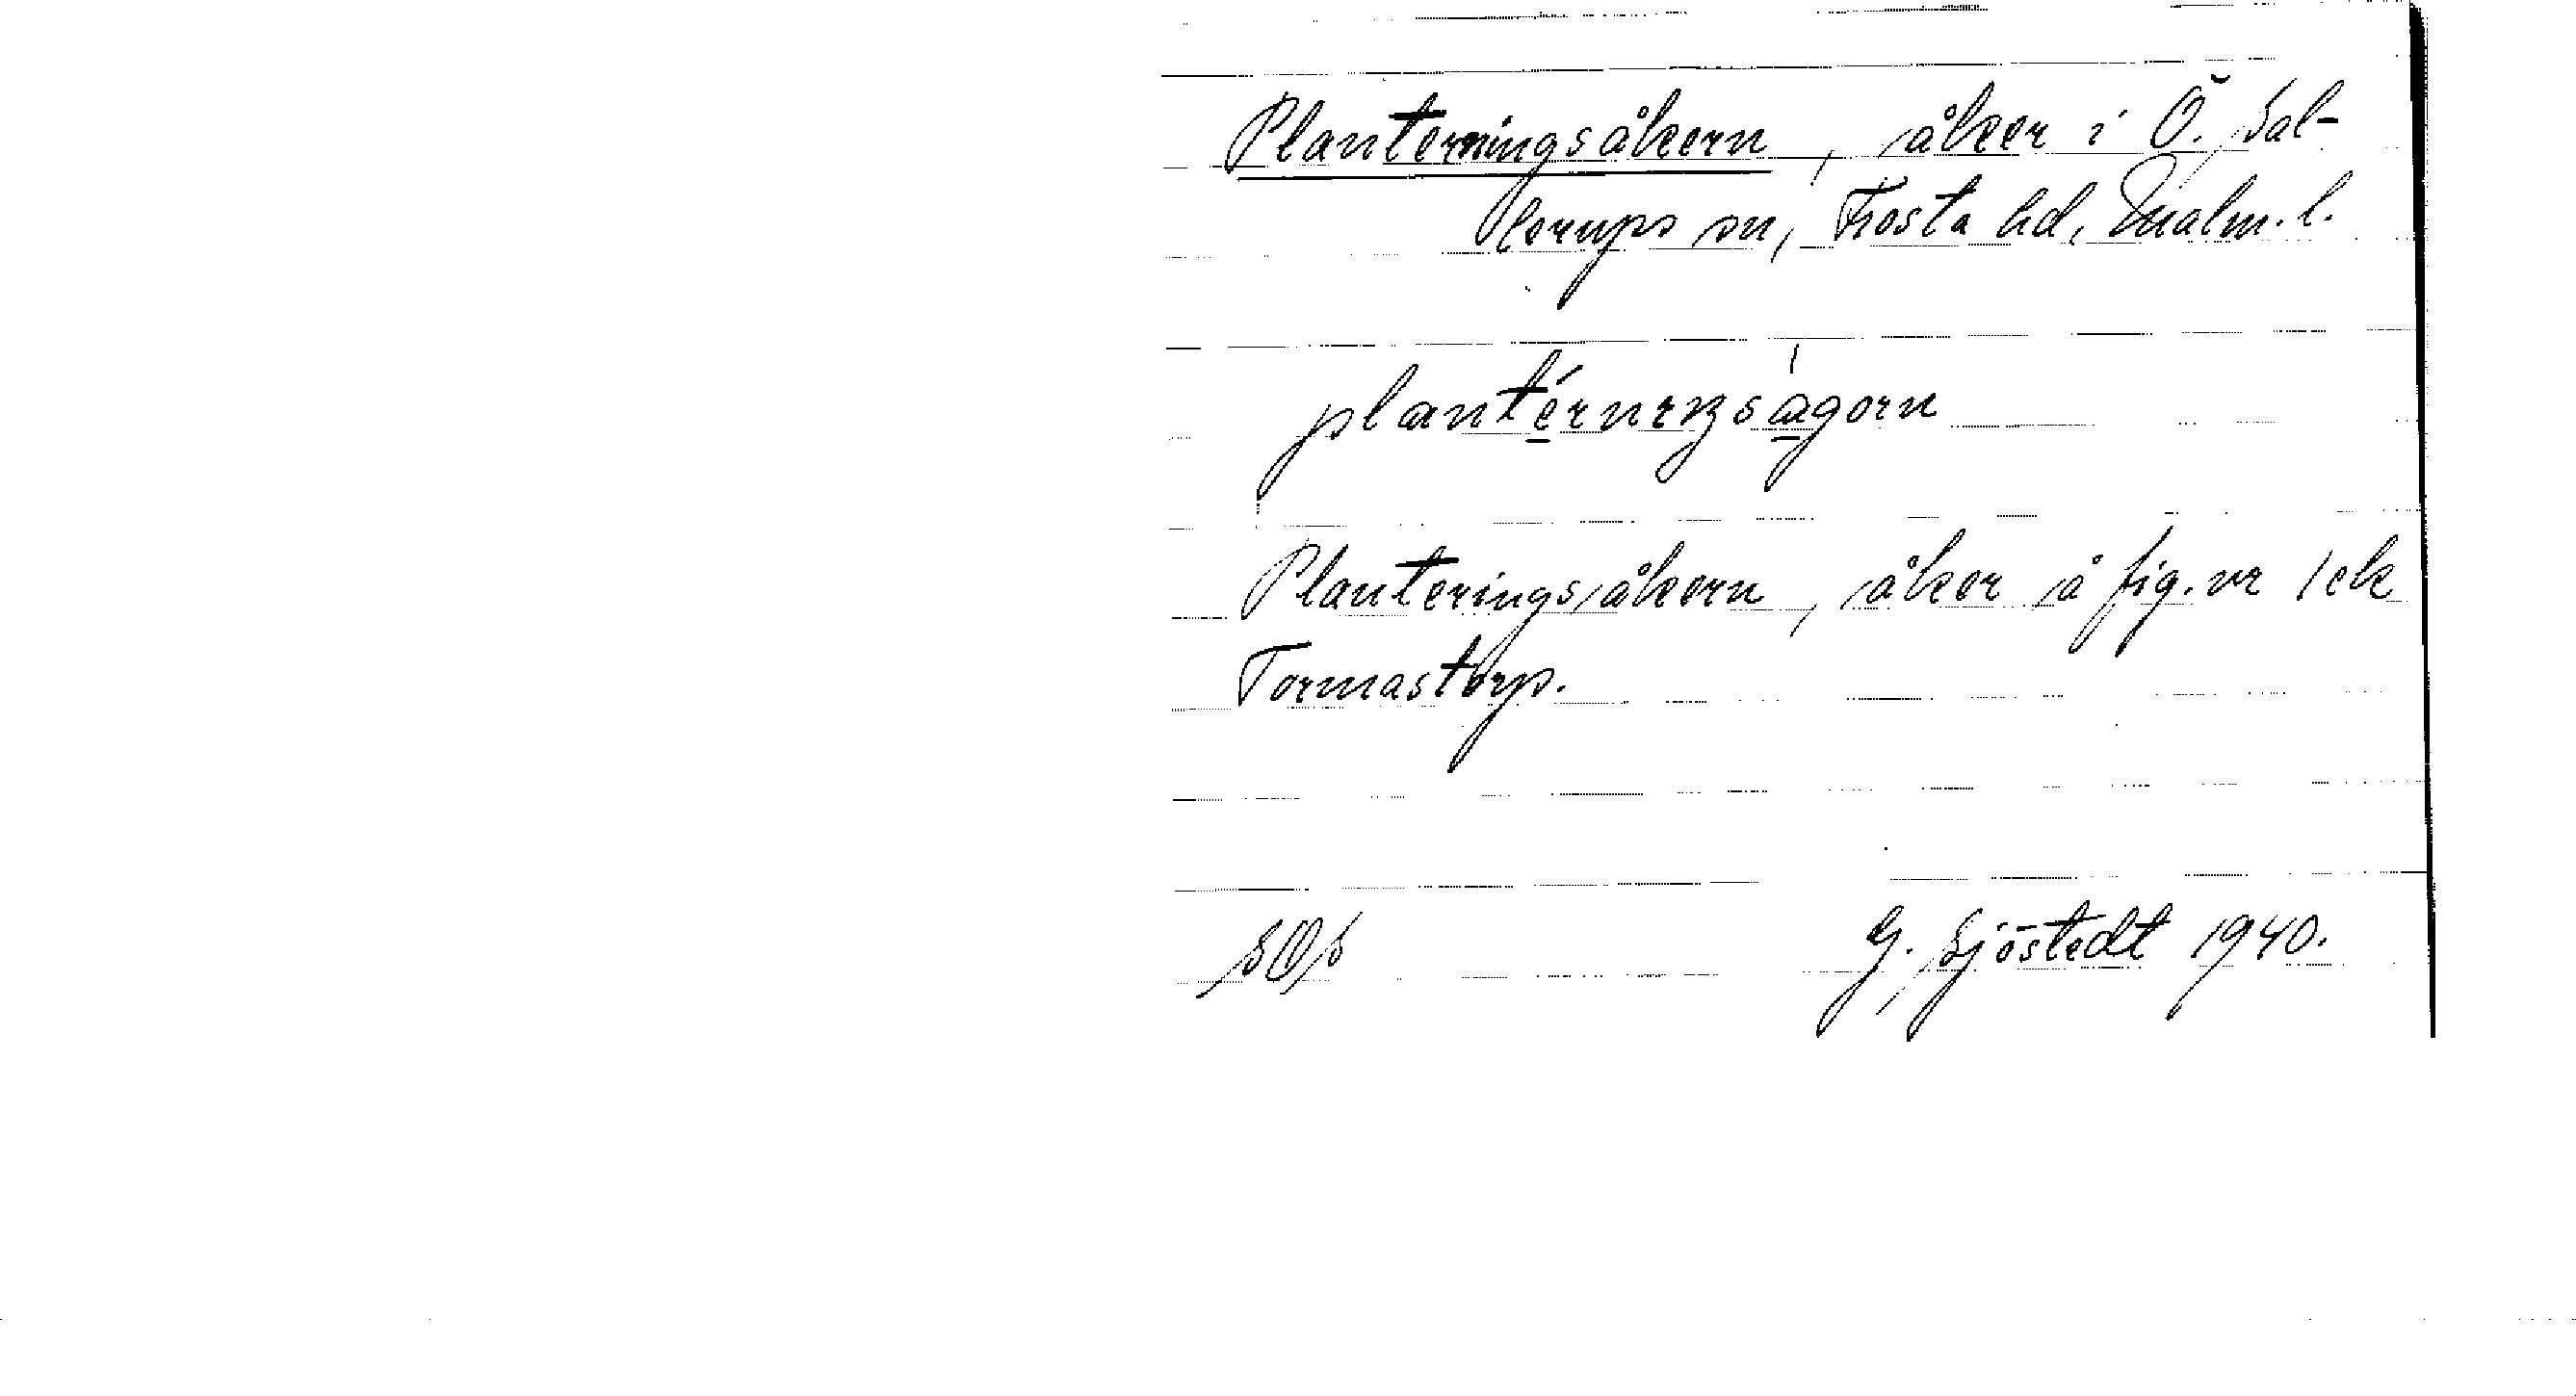 Planterningsåkern, åker i Ö. Sal-
lerups sn, Frosta hd, Malm. l.
plantérnıŋsàgorn
Planteringsåkern, åker å fig. nr 1ck
Tormastorp.
SOS G. Sjöstedt 1940.